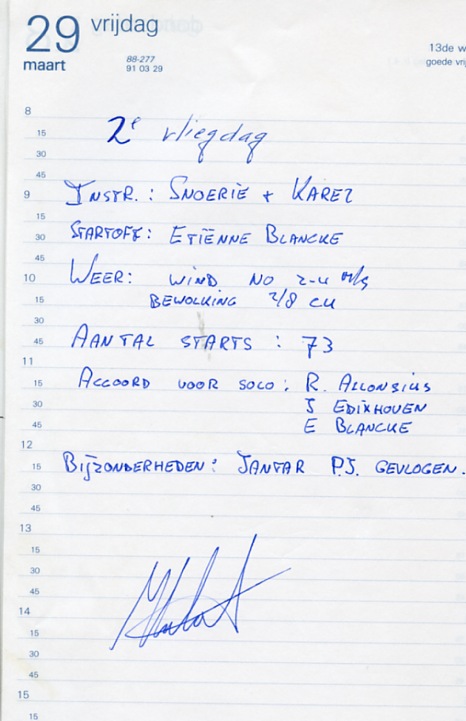 29 vrijdag
maart
88-277
91 03 29
13de w
goede vrij
8
2e vliegdag
15
30
45
9 INSTR.: SNOERIE + KAREL
15
30 STARTOFF: ETIËNNE BLANCKE
45
10 WEER: WIND NO 2-4 m/s
15 BEWOLKING 2/8 CU
30
45 AANTAL STARTS : 73
11
15 ACCOORD VOOR SOLO: R. ALLONSIUS
30 J EDIXHOVEN
45 E BLANCKE
12
15 BIJZONDERHEDEN: JANTAR P.J. GEVLOGEN.
30
45
13
15
30
45
14
15
30
45
15
15